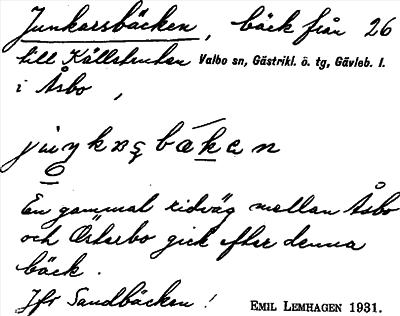 Junkarsbäcken, bäck från 26
till Källstruten Valbo sn, Gästrikl. ö. tg, Gävleb. l.
i Åsbo,
En gammal ridväg mellan Åsbo
och Österbo gick efter denna
bäck.
Jfr Sandbäcken!
EMIL LEMHAGEN 1931.